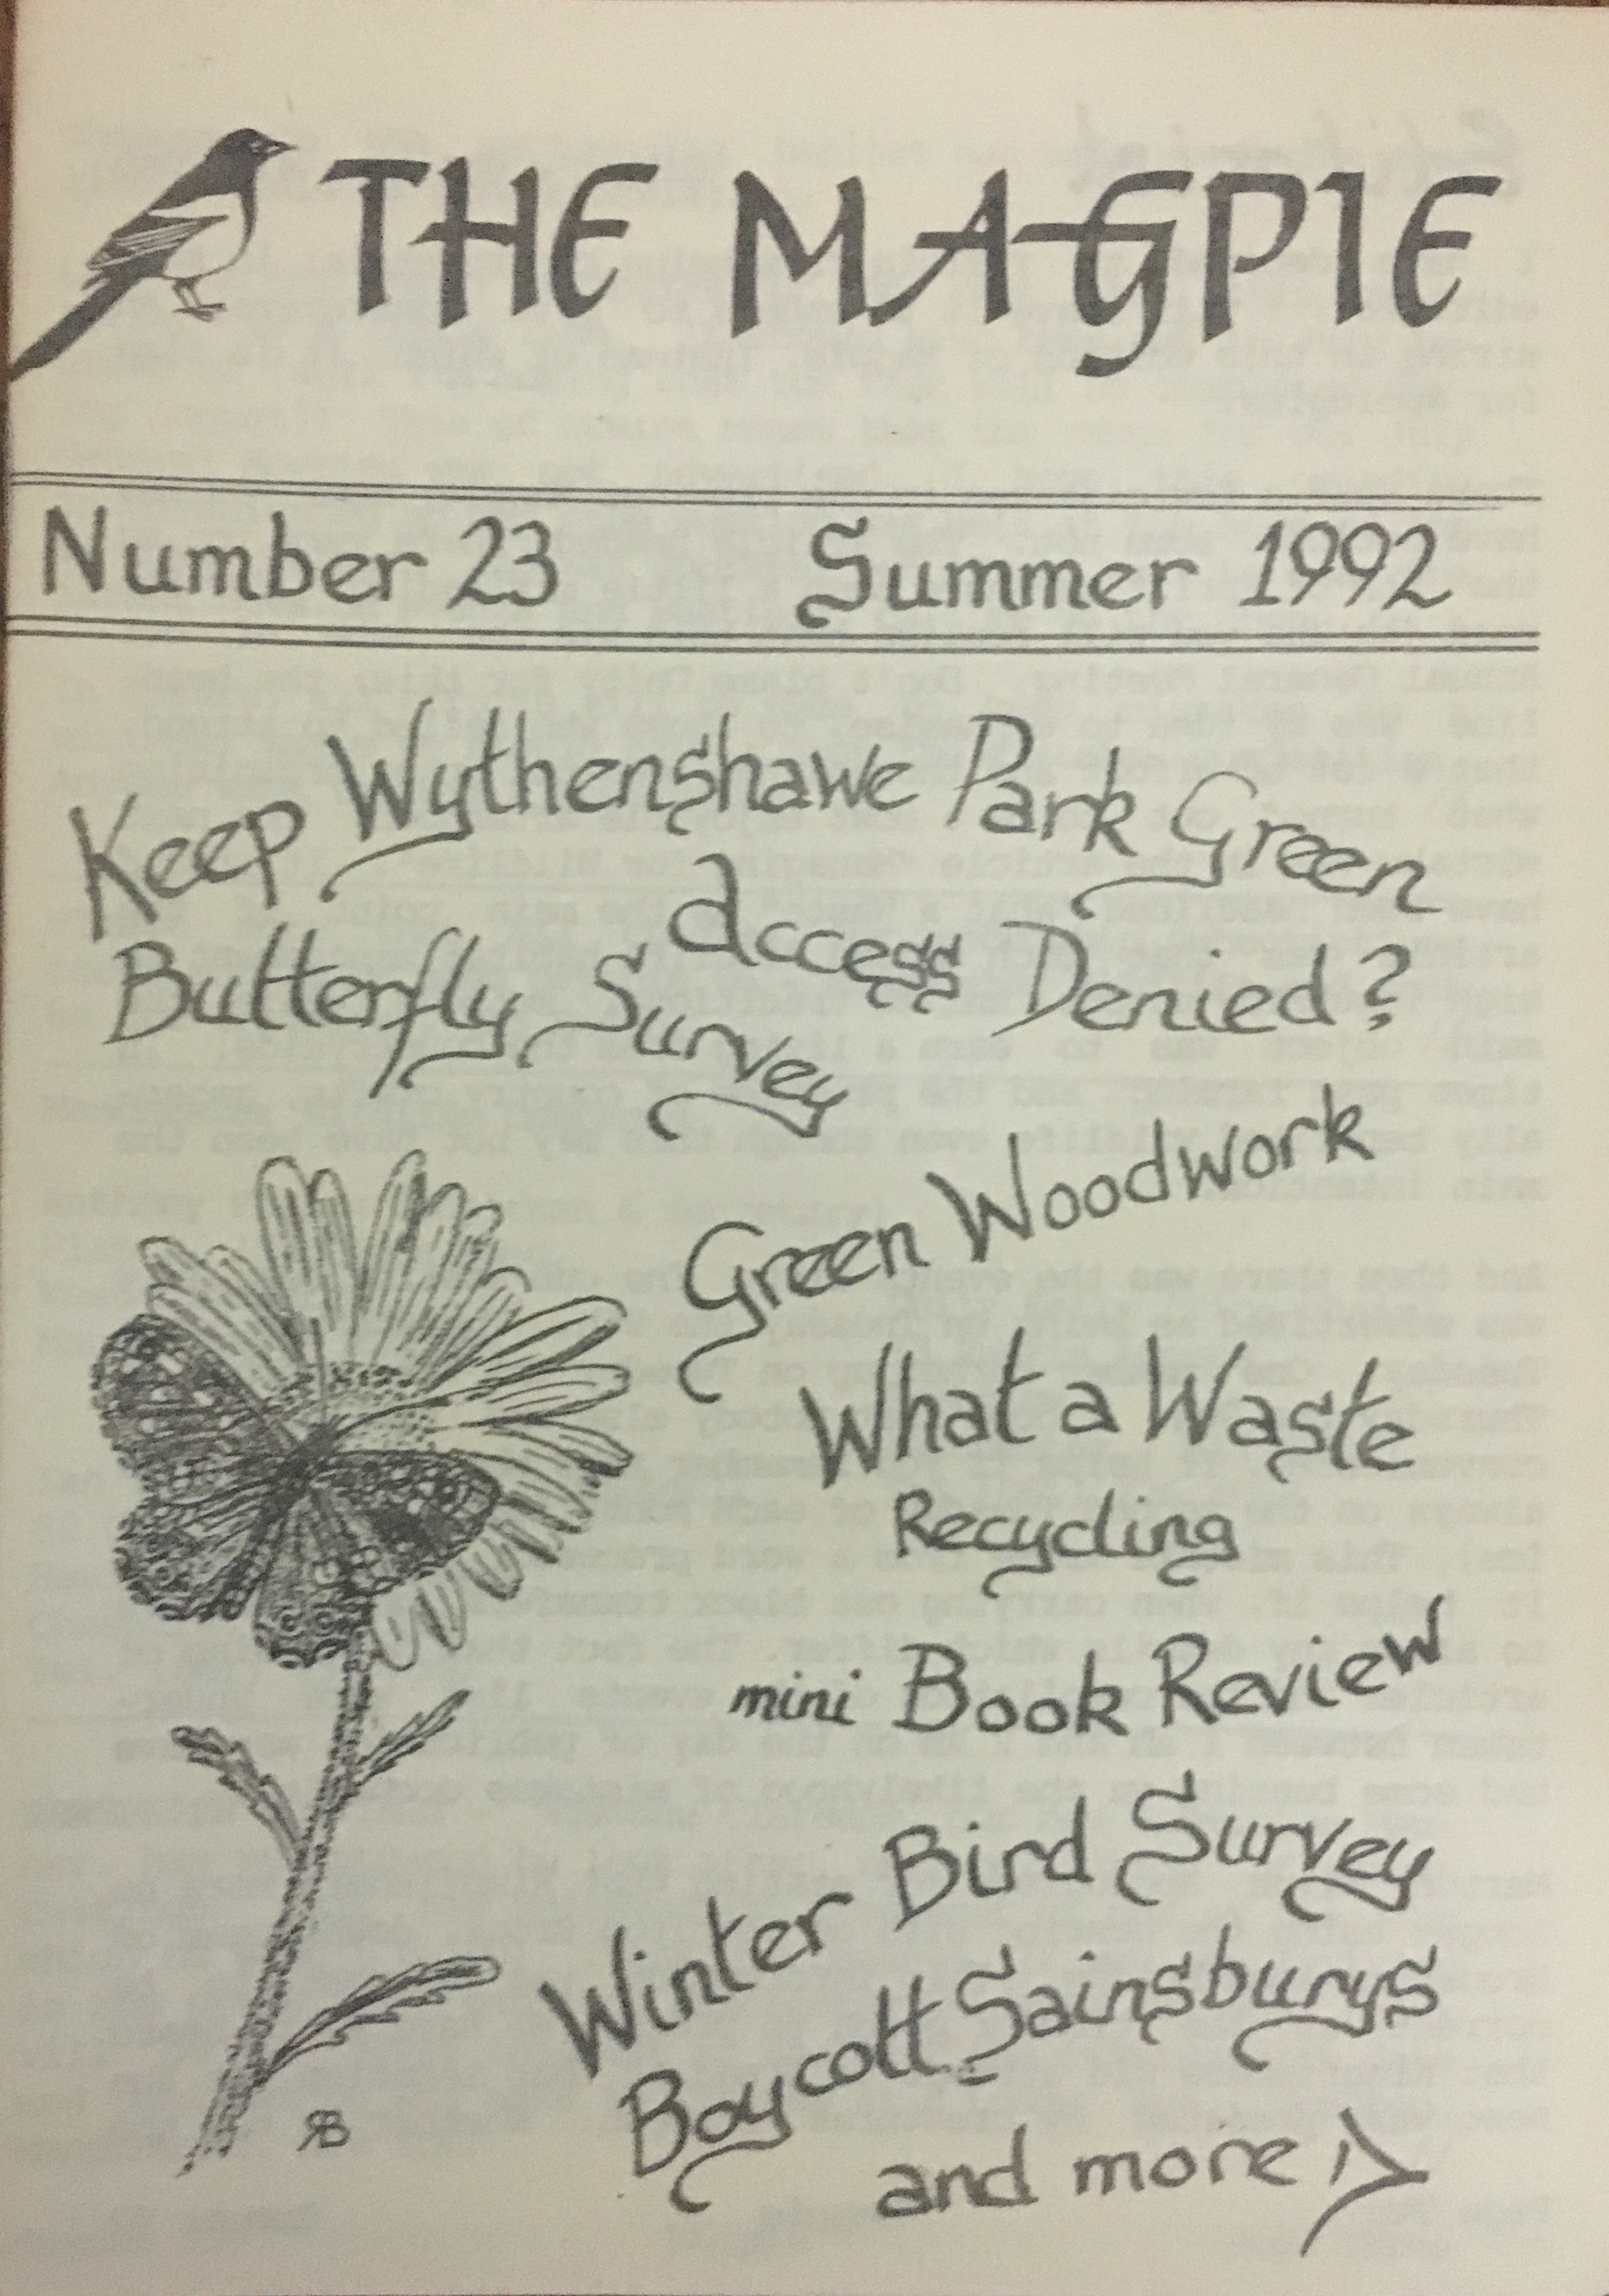 THE MAGPIE
Number 23 Summer 1992
Keep Wythenshawe Park Green
Access Denied?
Butterfly Survey
Green Woodwork
What a Waste
Recycling
mini Book Review
Winter Bird Survey
Boycott Sainsburys
and more
RB